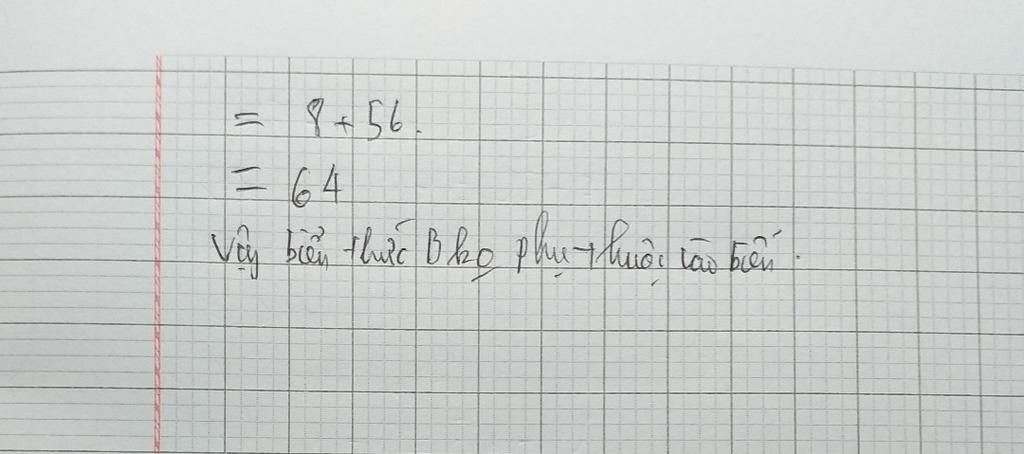 = 8 + 56.
= 64
Vậy biểu thức B ko phụ thuộc vào biến.